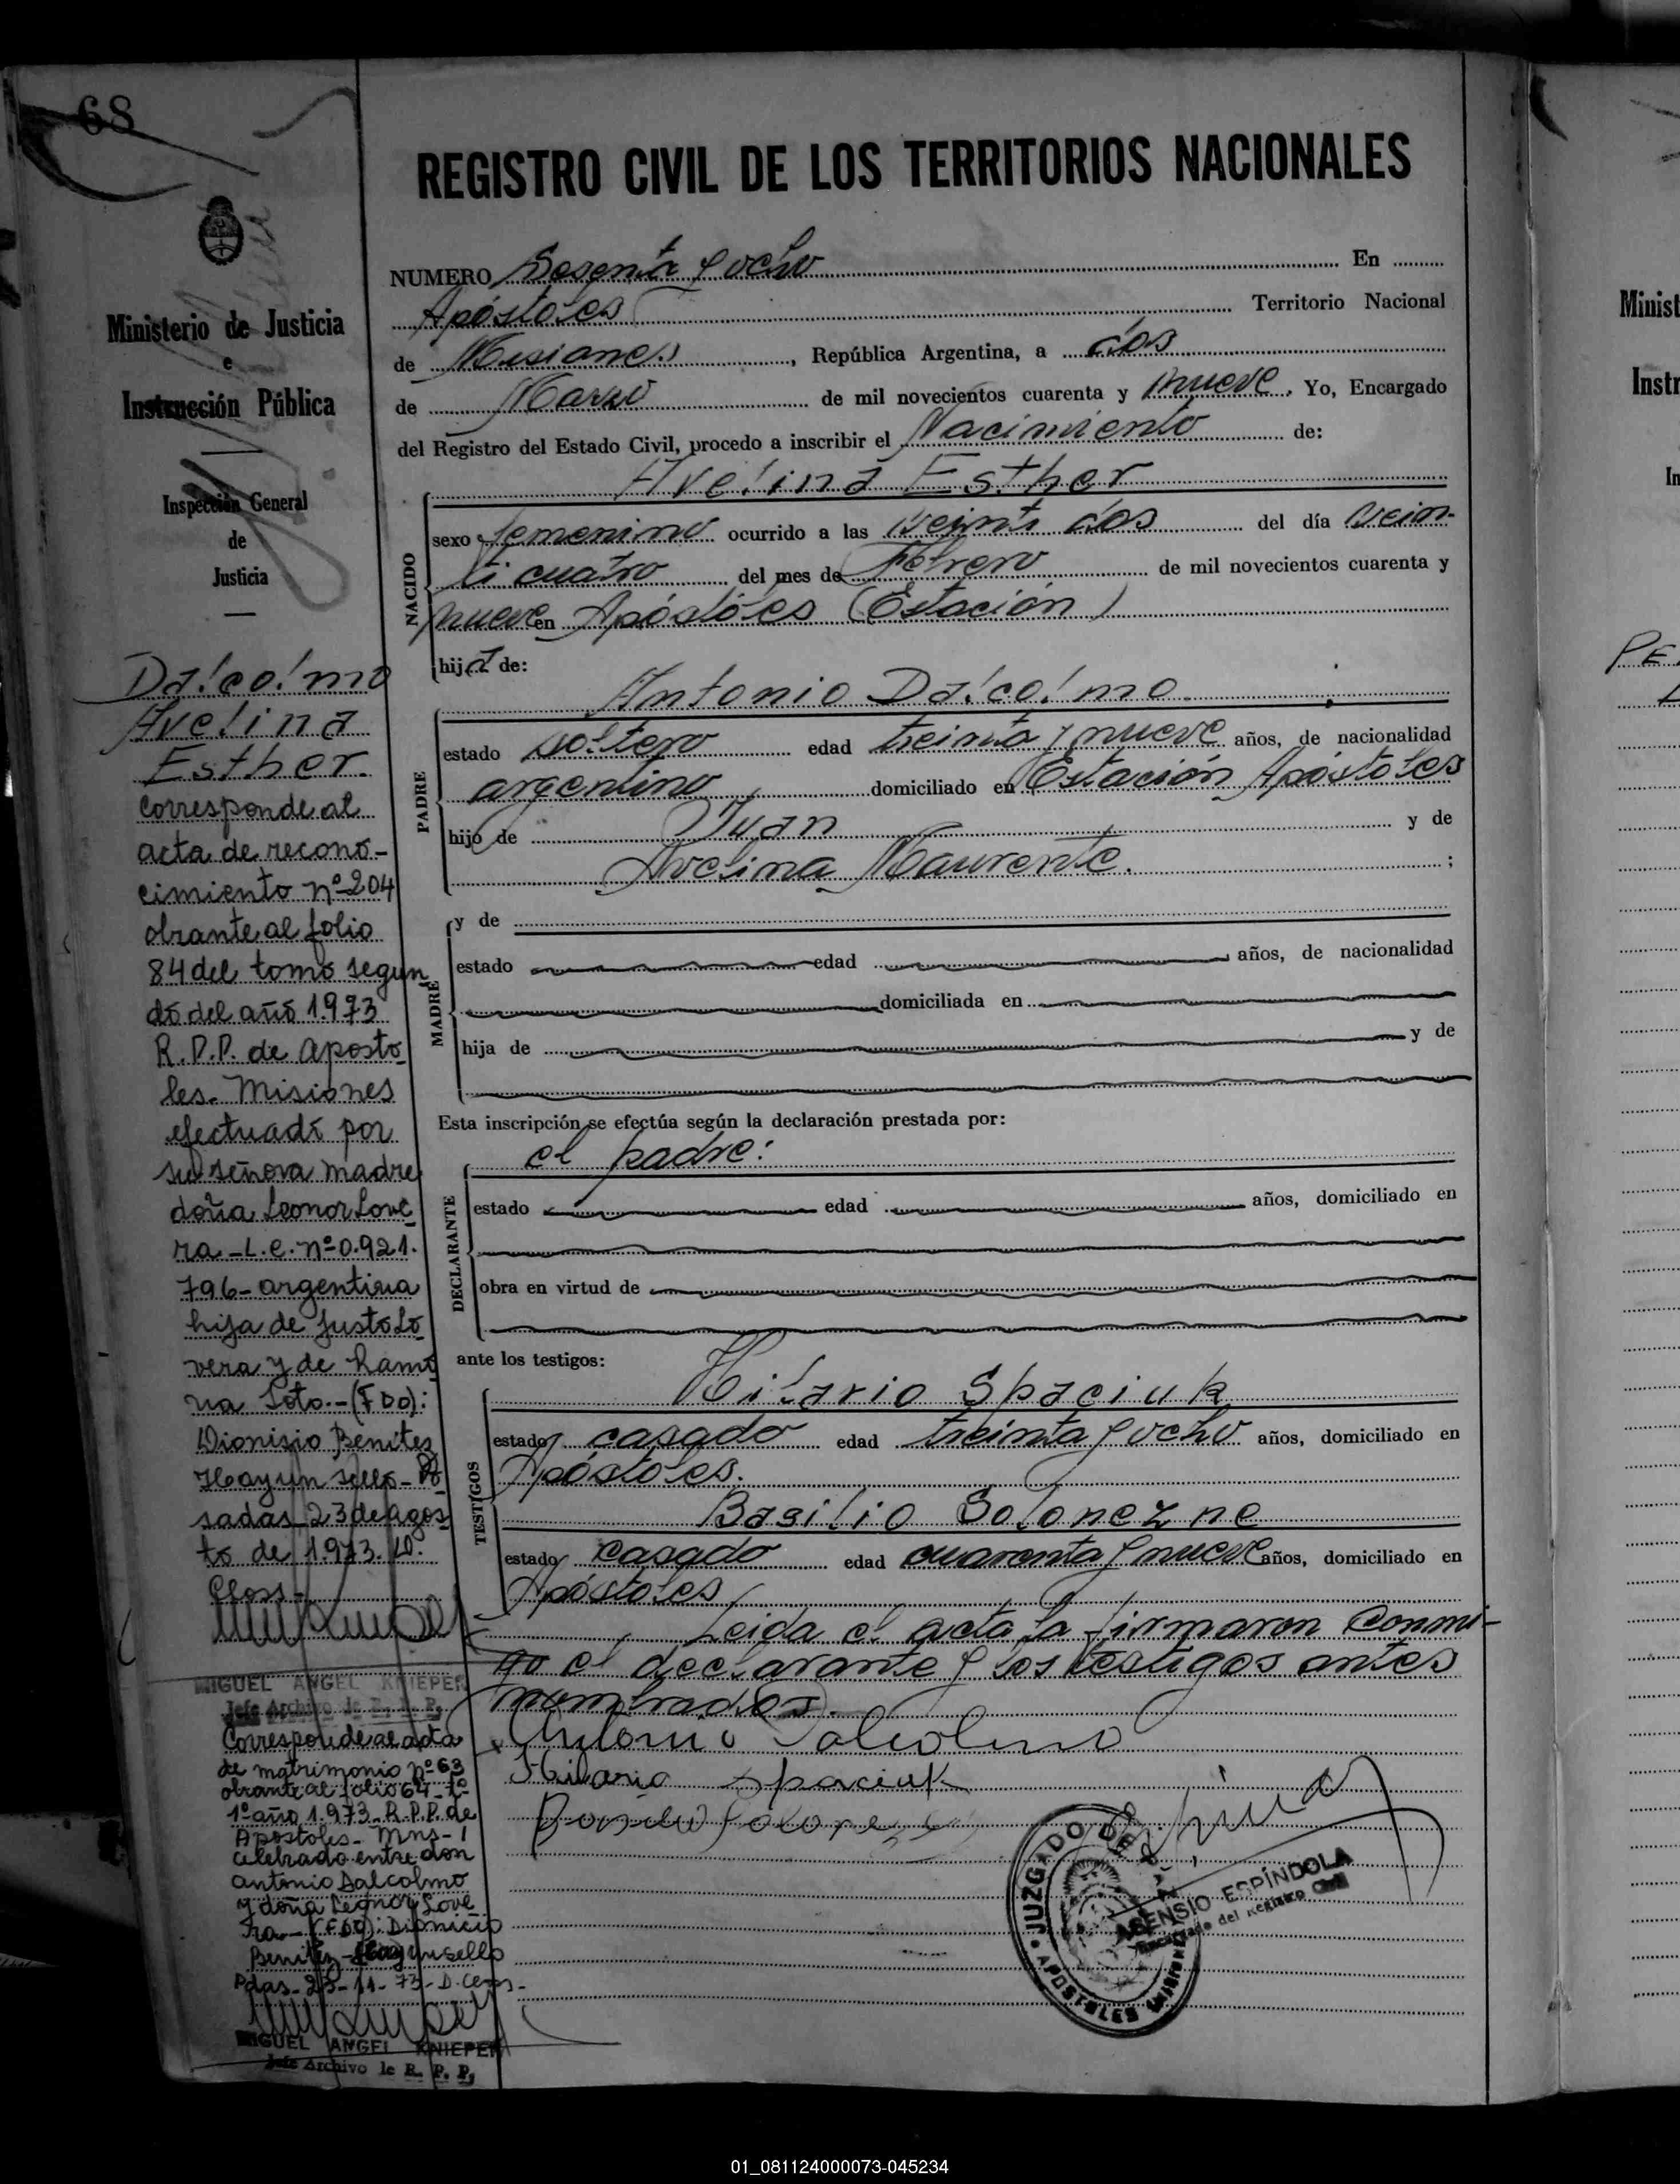 68
REGISTRO CIVIL DE LOS TERRITORIOS NACIONALES
NUMERO Sesenta y ocho En
Apóstoles Territorio Nacional
de Misiones, República Argentina, a dos
de Marzo de mil novecientos cuarenta y nueve. Yo, Encargado
del Registro del Estado Civil, procedo a inscribir el Nacimiento de:
Avelina Esther
NACIDO
sexo femenino ocurrido a las veinti dos del día vein-
ti cuatro del mes de Febrero de mil novecientos cuarenta y
nueve en Apóstoles (Estación)
hija de:
Antonio Dalcolmo
PADRE
estado soltero edad treinta y nueve años, de nacionalidad
argentino domiciliado en Estación Apóstoles
hijo de Juan y de
Avelina Maurente. ;
MADRE
y de
estado edad años, de nacionalidad
domiciliada en
hija de y de
Esta inscripción se efectúa según la declaración prestada por:
el padre:
DECLARANTE
estado edad años, domiciliado en
obra en virtud de
ante los testigos:
TESTIGOS
Hilario Spaciuk
estado casado edad treinta y ocho años, domiciliado en
Apóstoles.
Basilio Solonezne
estado casado edad cuarenta y nueve años, domiciliado en
Apóstoles
Leida el acta la firmaron conmi-
go el declarante y los testigos antes
nombrados.
Antonio Dalcolmo
Hilario Spaciuk
JUZGADO DE
APOSTOLES
ASENSIO ESPÍNDOLA
Encargado del Registro Civil
Ministerio de Justicia
e
Instrucción Pública
Inspección General
de
Justicia
Dalcolmo
Avelina
Esther.
Corresponde al
acta de recono-
cimiento nº 204
obrante al folio
84 del tomo segun
do del año 1.973
R.P.P. de Aposto
les. Misiones
efectuado por
su señora madre
doña Leonor Love
ra - L.C. nº 0.921.
796 - argentina
hija de Justo Lo
vera y de Ramo
na Soto. - (FDO):
Dionisio Benitez
Hay un sello - Po
sadas 23 de agos
to de 1.973. D.
Closs -
MIGUEL ANGEL KNIEPER
Jefe Archivo de R. P. P.
Corresponde al acta
de matrimonio nº 63
obrante al folio 64 - Tº
1º año 1.973 - R.P.P. de
Apostoles - Mns -
celebrado entre don
antonio Dalcolmo
y doña Leonor Love
ra - (FDO): Dionicio
Benitez - Hay un sello
Pdas - 23-11-73 - D. Closs -
MIGUEL ANGEL KNIEPER
Jefe Archivo de R. P. P.
Minist
Instr
In
PE
01_081124000073-045234